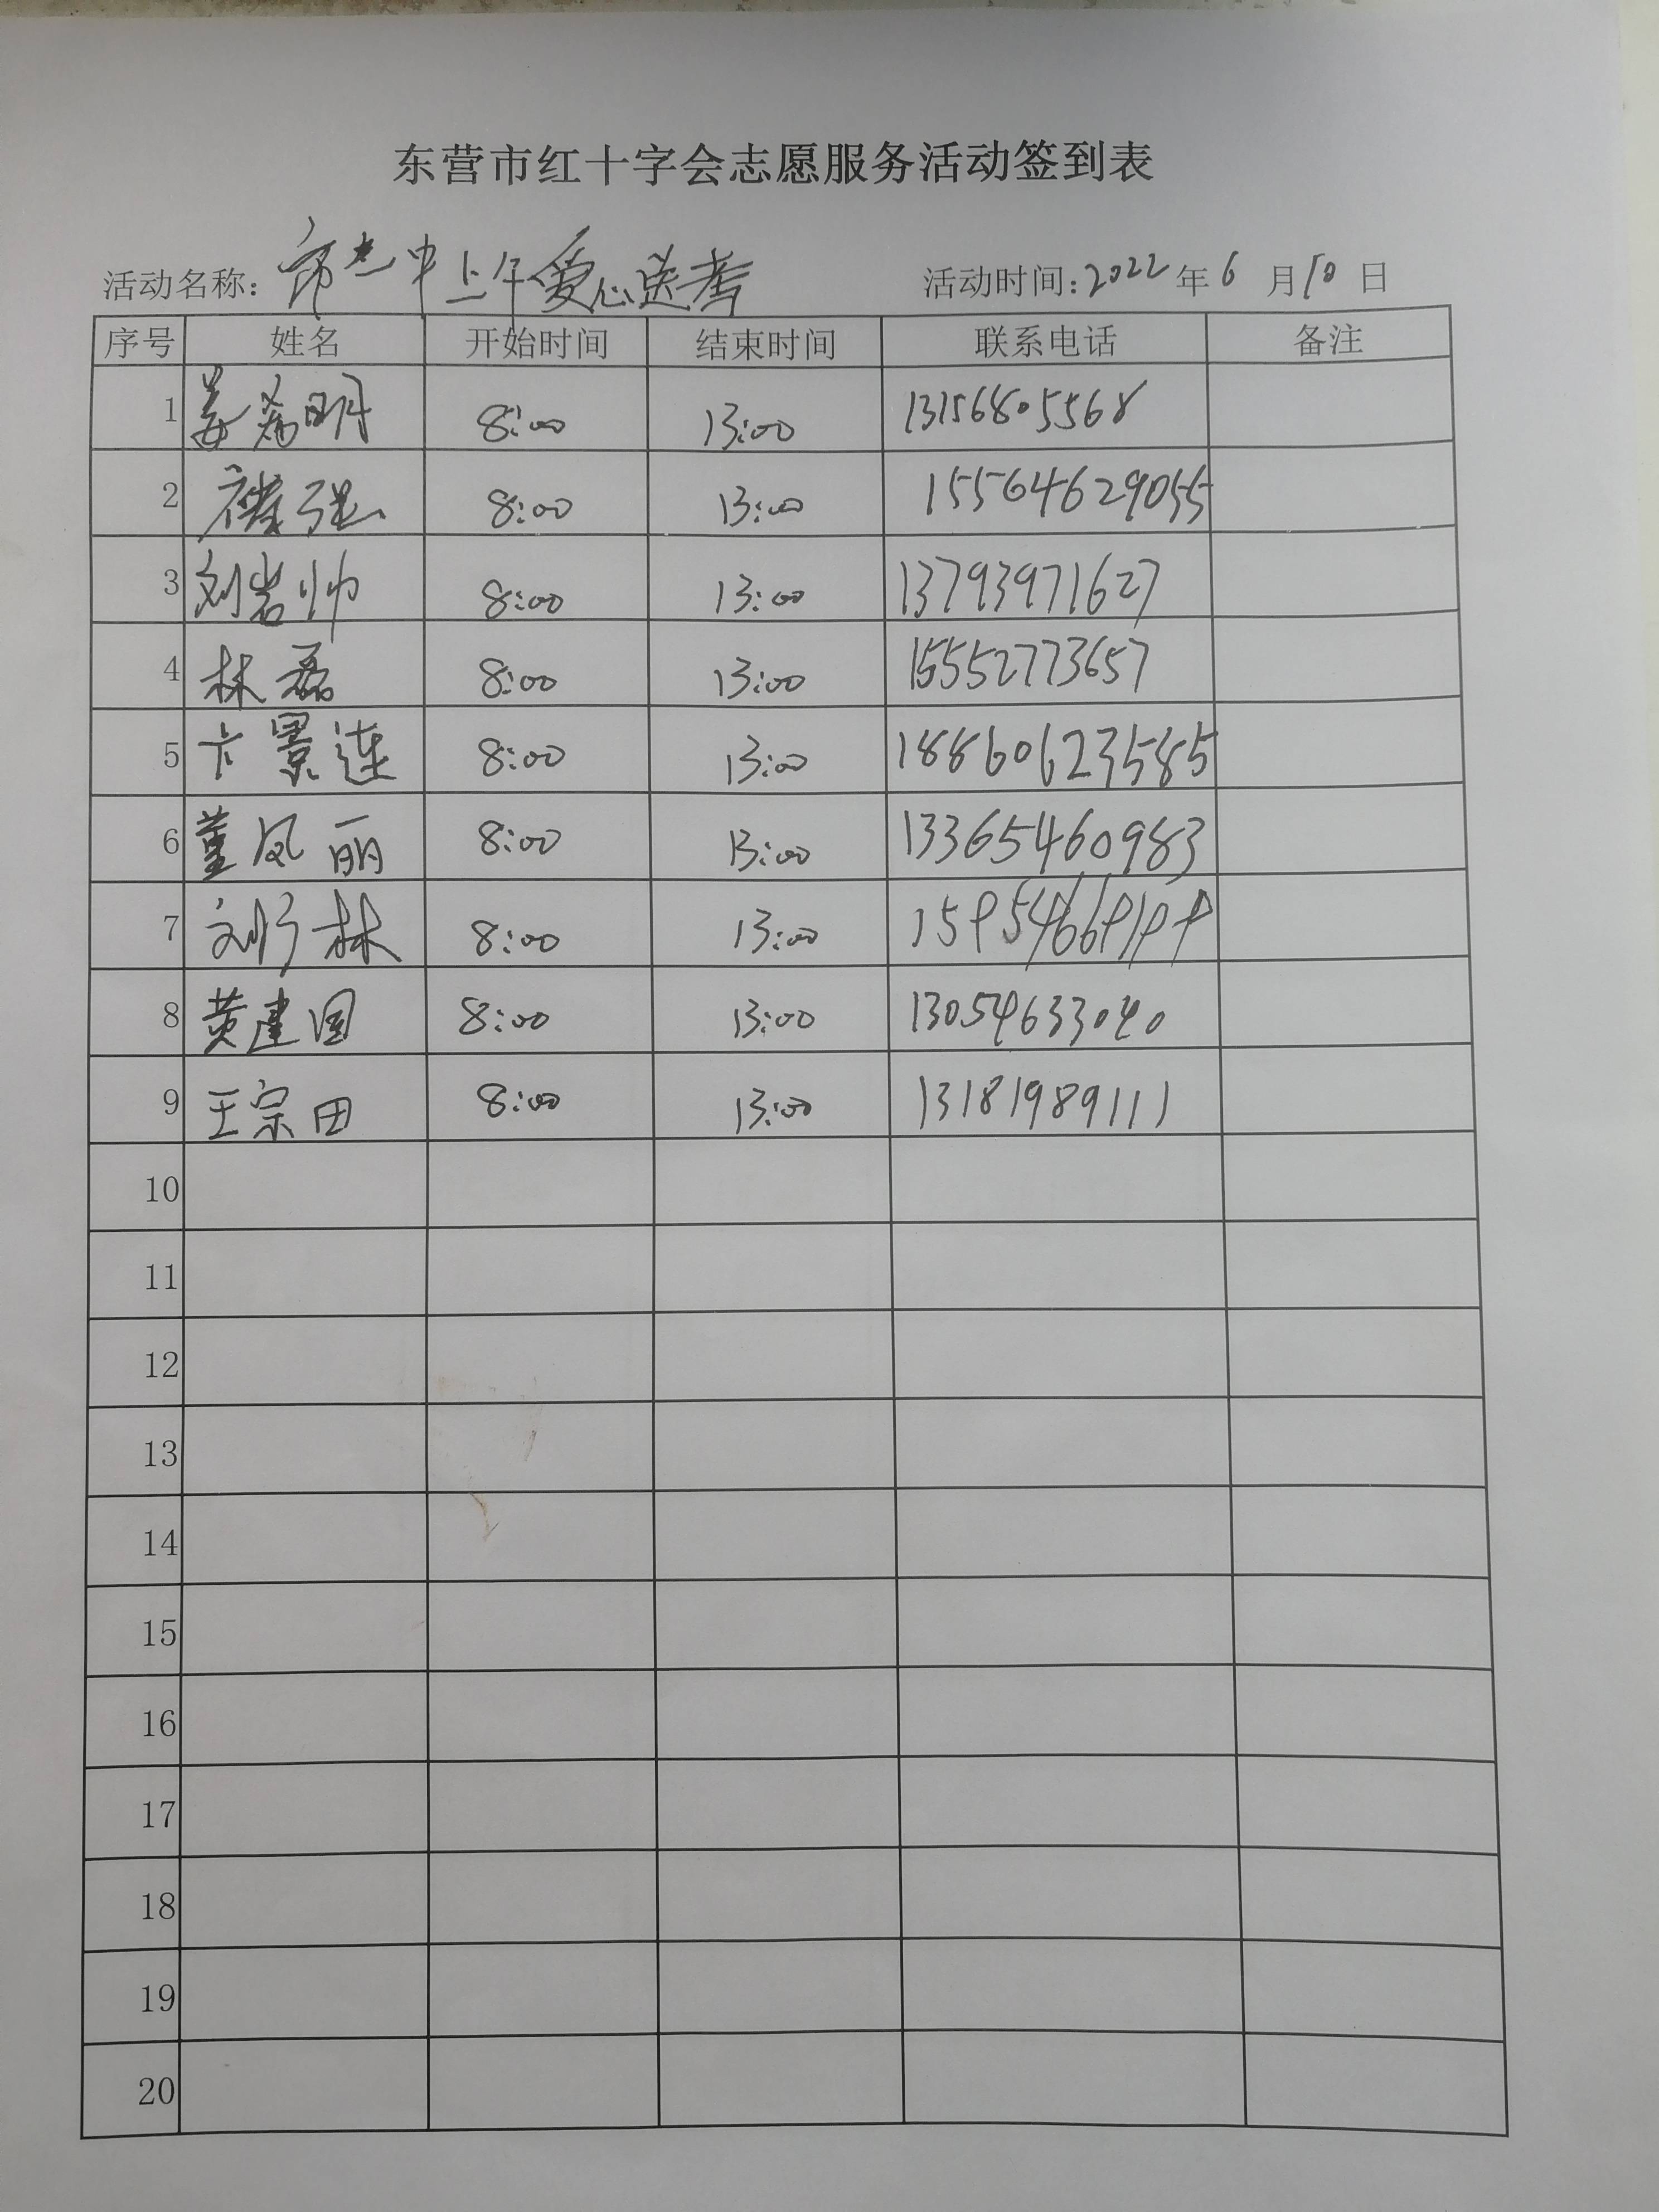 东营市红十字会志愿服务活动签到表
活动名称: 市 中上午爱心送考 活动时间: 2022 年 6 月 10 日
序号 姓名 开始时间 结束时间 联系电话 备注
1 姜希明 8:00 13:00 13156805568
2 强 8:00 13:00 15564629055
3 刘岩帅 8:00 13:00 13793971627
4 林磊 8:00 13:00 15552773657
5 卞景连 8:00 13:00 18860623585
6 董凤丽 8:00 13:00 13365460983
7 林 8:00 13:00
8 黄建国 8:00 13:00 13054633040
9 王宗田 8:00 13:00 13181989111
10
11
12
13
14
15
16
17
18
19
20